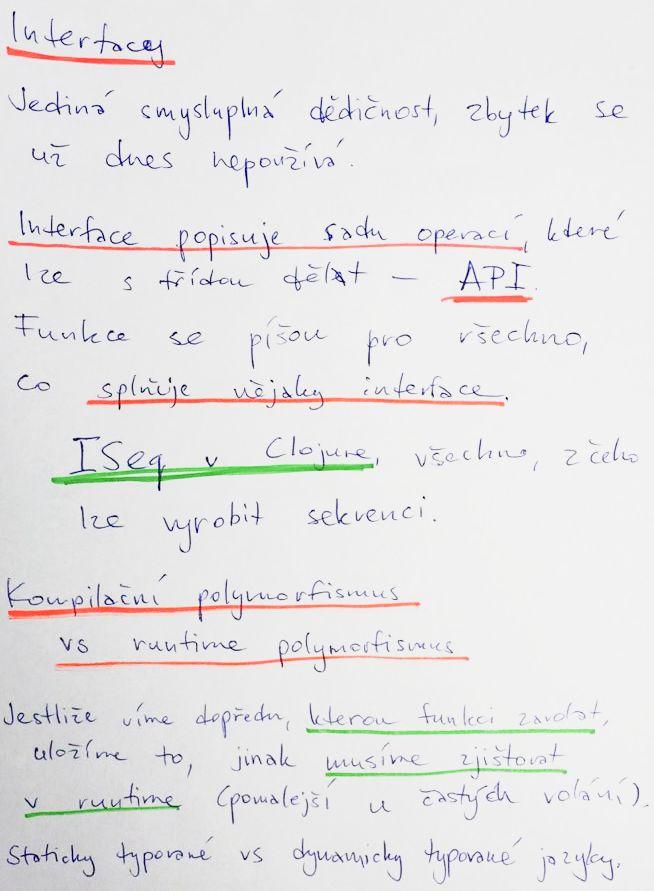 Interfacy
Jediná smysluplná dědičnost, zbytek se
už dnes nepoužívá.
Interface popisuje sadu operací, které
lze s třídou dělat – API.
Funkce se píšou pro všechno,
co splňuje nějaky interface.
ISeq v Clojure, všechno, z čeho
lze vyrobit sekvenci.
Kompilační polymorfismus
vs runtime polymorfismus
Jestliže víme dopředu, kterou funkci zavolat,
uložíme to, jinak musíme zjišťovat
v runtime (pomalejší u častých volání).
Staticky typované vs dynamicky typované jazyky.